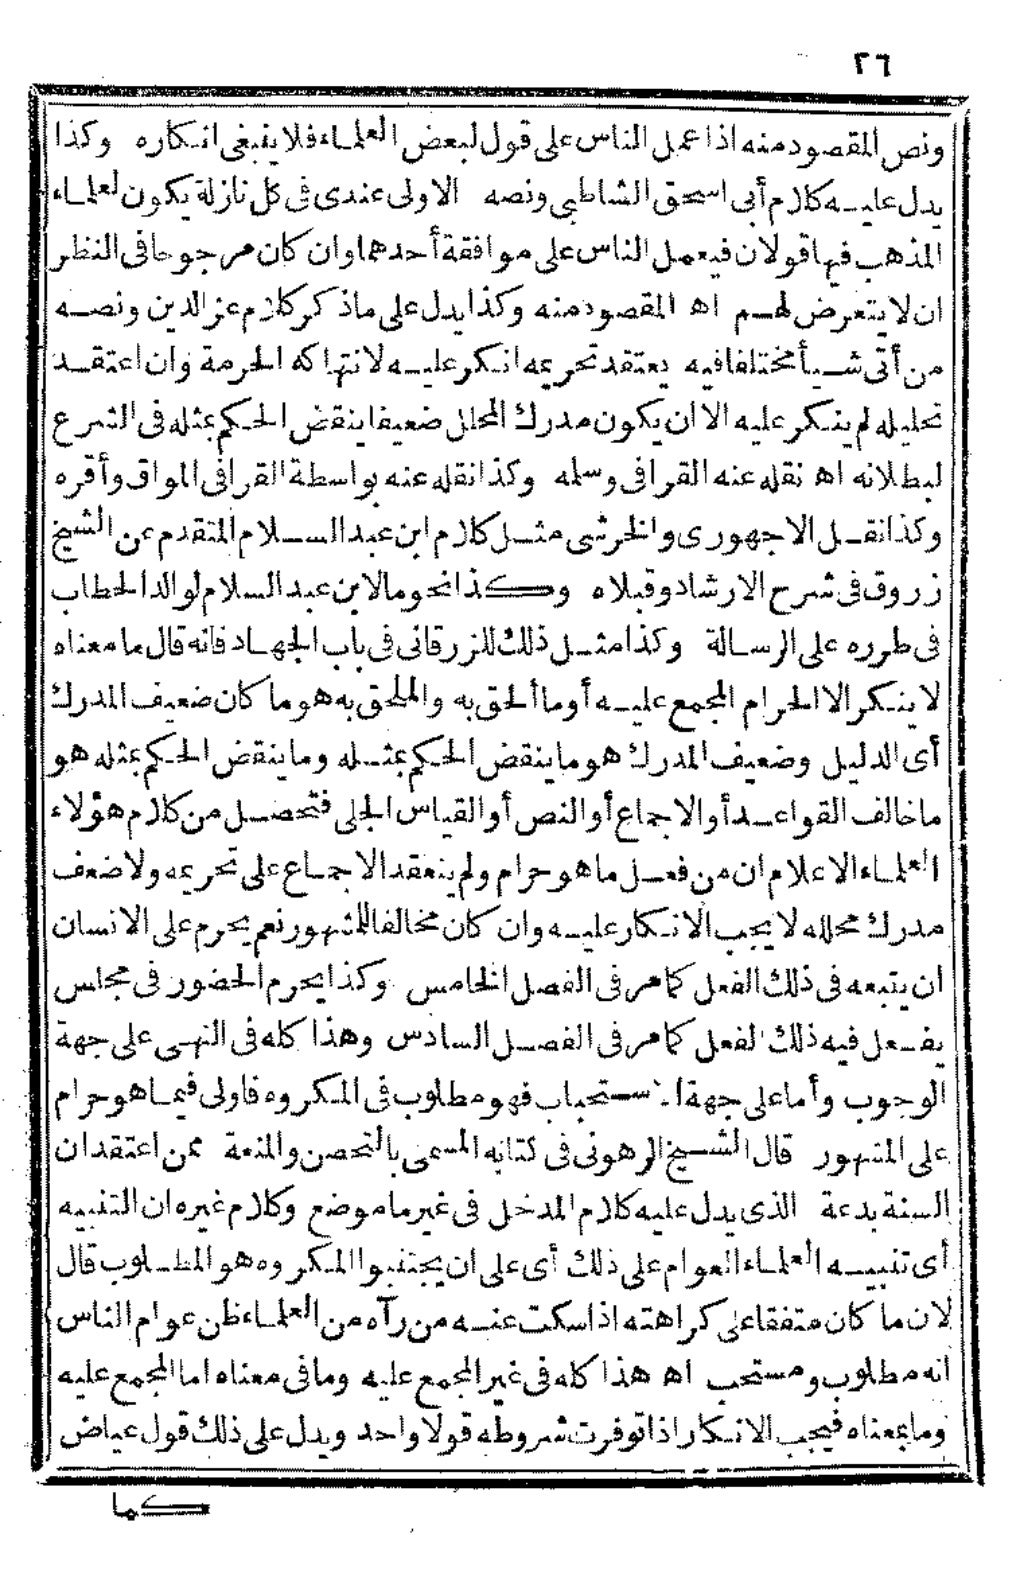 ٢٦
ونص المقصود منه اذا عمل الناس على قول لبعض العلماء فلا ينبغى انكاره وكذا
يدل عليه كلام أبى اسحق الشاطبى ونصه الاولى عندى فى كل نازلة يكون لعلماء
المذهب فيها قولان فيعمل الناس على موافقة أحدهما وان كان مرجوحا فى النظر
ان لا يتعرض لهم اه المقصود منه وكذا يدل على ما ذكر كلام عز الدين ونصه
من أتى شيأ مختلفا فيه يعتقد تحريمه انكر عليه لانتهاكه الحرمة وان اعتقد
تحليله لم ينكر عليه الا ان يكون مدرك المحلل ضعيفا ينقض الحكم بمثله فى الشرع
لبطلانه اه نقله عنه القرافى وسلمه وكذا نقله عنه بواسطة القرافى المواق وأقره
وكذا نقل الاجهورى والخرشى مثل كلام ابن عبد السلام المتقدم عن الشيخ
زروق فى شرح الارشاد وقبلاه وكذا نحو ما لابن عبد السلام لوالد الحطاب
فى طرره على الرسالة وكذا مثل ذلك للزرقانى فى باب الجهاد فانه قال ما معناه
لا ينكر الا الحرام المجمع عليه أو ما ألحق به والملحق به هو ما كان ضعيف المدرك
أى الدليل وضعيف المدرك هو ما ينقض الحكم بمثله وما ينقض الحكم بمثله هو
ما خالف القواعد أو الاجماع أو النص أو القياس الجلى فتحصل من كلام هؤلاء
العلماء الاعلام ان من فعل ما هو حرام ولم ينعقد الاجماع على تحريمه ولا ضعف
مدرك محلله لا يجب الانكار عليه وان كان مخالفا للمشهور نعم يحرم على الانسان
ان يتبعه فى ذلك الفعل كما مر فى الفصل الخامس وكذا يحرم الحضور فى مجلس
يفعل فيه ذلك الفعل كما مر فى الفصل السادس وهذا كله فى النهى على جهة
الوجوب وأما على جهة الاستحباب فهو مطلوب فى المكروه فاولى فيما هو حرام
على المشهور قال الشيخ الرهونى فى كتابه المسمى بالتحصن والمنعة ممن اعتقد ان
السنة بدعة الذى يدل عليه كلام المدخل فى غير ما موضع وكلام غيره ان التنبيه
أى تنبيه العلماء العوام على ذلك أى على ان يجتنبوا المكروه هو المطلوب قال
لان ما كان متفقا على كراهته اذا سكت عنه من رآه من العلماء ظن عوام الناس
انه مطلوب ومستحب اه هذا كله فى غير المجمع عليه وما فى معناه اما المجمع عليه
وما بمعناه فيجب الانكار اذا توفرت شروطه قولا واحد ويدل على ذلك قول عياض
كما